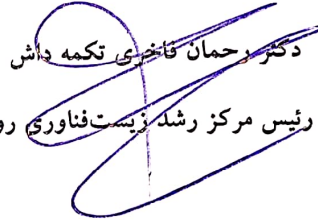 دکتر رحمان فاخری تکمه داش
رئیس مرکز رشد زیست‌فناوری رو